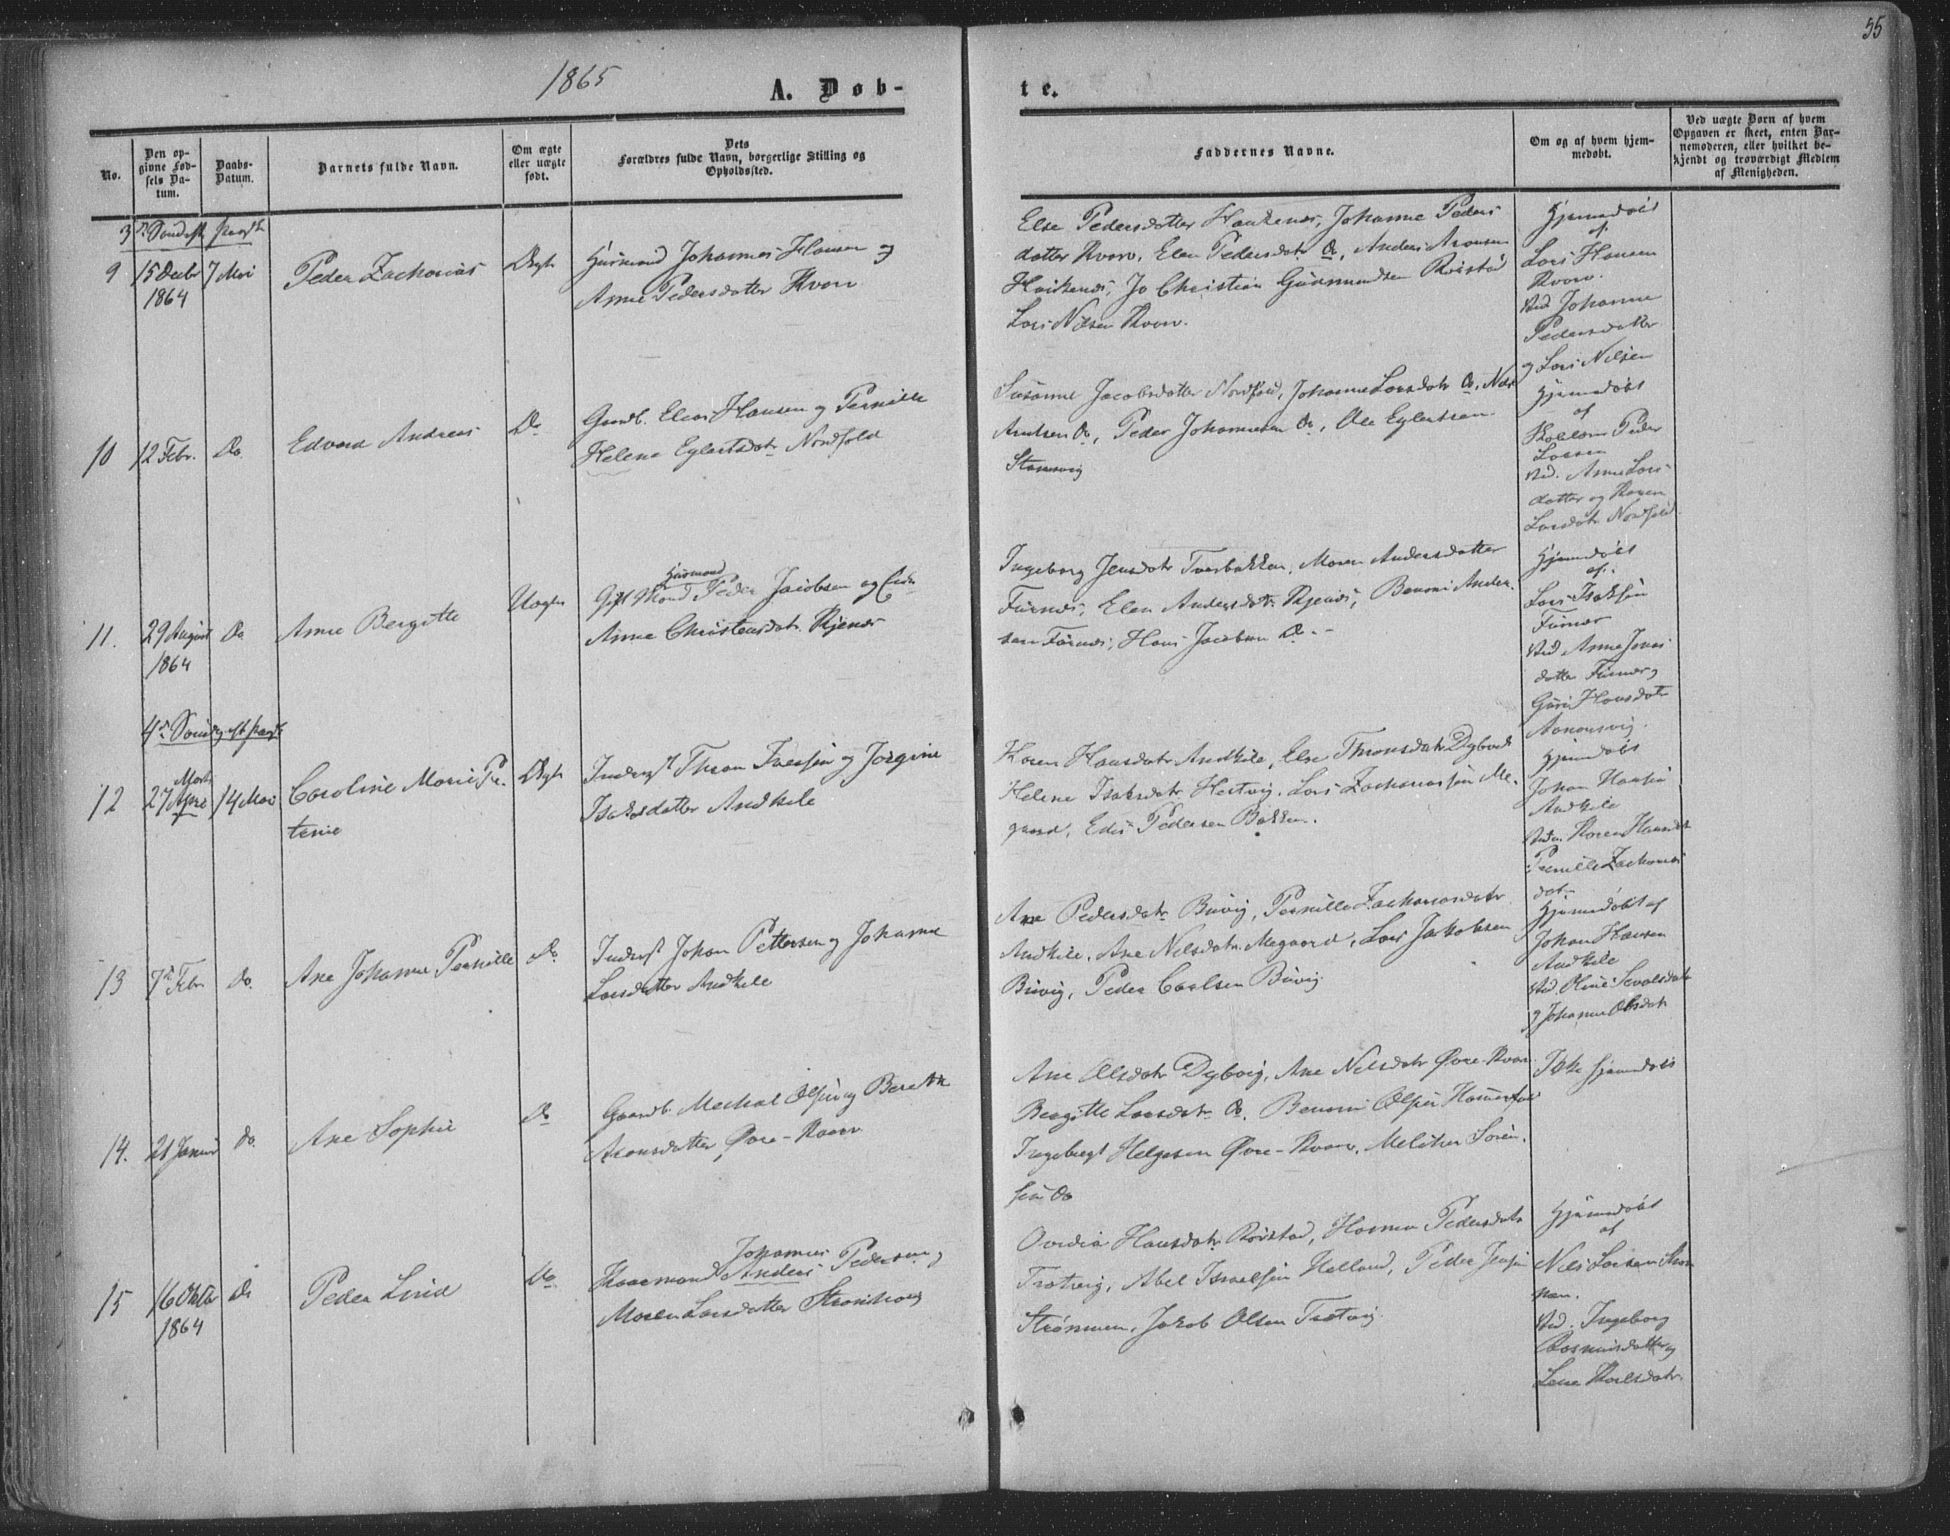 1865
A. Døb-
te.
55
No.
Den op-
givne Fød-
sels Da-
tum.
Daabs-
Datum.
Barnets fulde Navn.
Om ægte
eller uægte
født.
Dets
Forældres fulde Navn, borgerlige Stilling og
Opholdssted.
Faddernes Navne.
Om og af hvem hjem-
medøbt.
Ved uægte Børn af hvem
Opgaven er skeet, enten Bar-
nemoderen, eller hvilket be-
kjendt og troværdigt Medlem
af Menigheden.
3
9
15 Decbr
1864
7 Mai
Peder Zacharias
Ægte
Huusmand Johannes Hansen og
Anne Pedersdatter Kvarv
Else Pedersdatter Haukenes, Johanne Peders
datter Kvarv, Elen Pedersdatr Do, Anders Aronsen
Christian Gudmundsen Røistad
Lars Nilsen Kvarv.
Hjemmedøbt
af
Lars Hansen
Kvarv.
Ved Johanne
Pedersdatter
og Lars Nilsen
10
12 Febr.
Do.
Edvard Andreas
Do
Gaardb. Elias Hansen og Pernille
Helene Eglertsdatr Nordfold
Susanne Jacobsdatter Nordfold, Johanne Larsdatr Do, Nils
Do, Peder Johannesen Do, Ole Eglertsen
Hjemmedøbt
af
Peder
Larsen
Ved. Anne Lars-
datter og Karen
Larsdatr Nordfold
11.
29 August
1864
Do
Anne Bergitte
Uægte
Huusmand
Gift Mand Peder Jacobsen og
Anne Christensdatr Kjenæs
Ingeborg Jensdatr Tverbakken, Maren Andersdatter
Furnæs, Elen Andersdatr Kjenæs, Benoni Ander-
sen Furnæs, Hans Jacobsen Do.
Hjemmedøbt
af.
Lars Isaksen
Furnæs
Ved Anne Jonas
datter Furnæs og
Guri Hansdatr
4de Søndag eft Paaske
12
Marts
27
14 Mai
Caroline Marie Pe-
trine
Ægte
Inderst Thron Iversen og Jørgine
Isaksdatter Andkile
Karen Hansdatr Andkile, Else Thronsdatr
Helene Isaksdatr Hestvig, Lars Zachariassen Me-
gaard, Edis Pedersen Bakken.
Hjemmedøbt
Johan Hansen
Andkile
Karen Hansdatr
Pernille Zacharias
datr
13
7de Febr.
Do.
Ane Johanne Pernille
Do
Inderst Johan Pettersen og Johanne
Larsdatter Andkile
Ane Pedersdatr Buvig, Pernille Zachariasdatr
Andkile, Ane Nilsdatr Megaard, Lars Jakobsen
Buvig, Peder Carlsen Buvig
Hjemmedøbt af
Johan Hansen
Andkile
Ved
og Johanne Olsdatr
14.
21 Januar
do.
Ane Sophie
Do
Gaardb. Mechal Olsen og Bereth
Aronsdatter Øvre-Kvarv
Ane Olsdatr Dybvig, Ane Nilsdatr Øvre-Kvarv
Bergitte Larsdatr Do. Benoni Olsen
Ingebrigt Helgesen Øvre-Kvarv, Meliker Søren-
sen Do
Ikke hjemmedøbt
15
16 Oktbr
1864
Do
Peder Lind
Do
Johannes
Anders Pedersen og
Maren Larsdatter
Ovedia Hansdatr Røistad, Hanna Pedersdatr
Trætvig, Abel Israelsen Helland, Peder Jensen
Strømmen, Jakob Olsen Trætvig.
Hjemmedøbt
af
Nils Larsen
Ved. Ingeborg
Rasmusdatter og
Lene